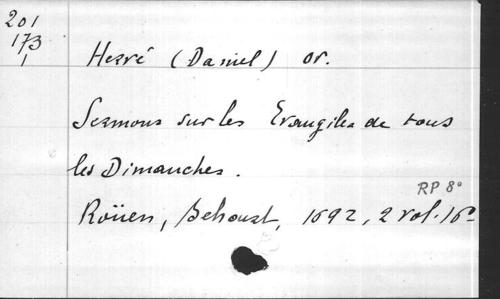 201
173
1
Hervé (Daniel) or.
Sermons sur les Evangiles de tous
les Dimanches.
RP 8°
Roüen, Behourt, 1692, 2 vol. 16°